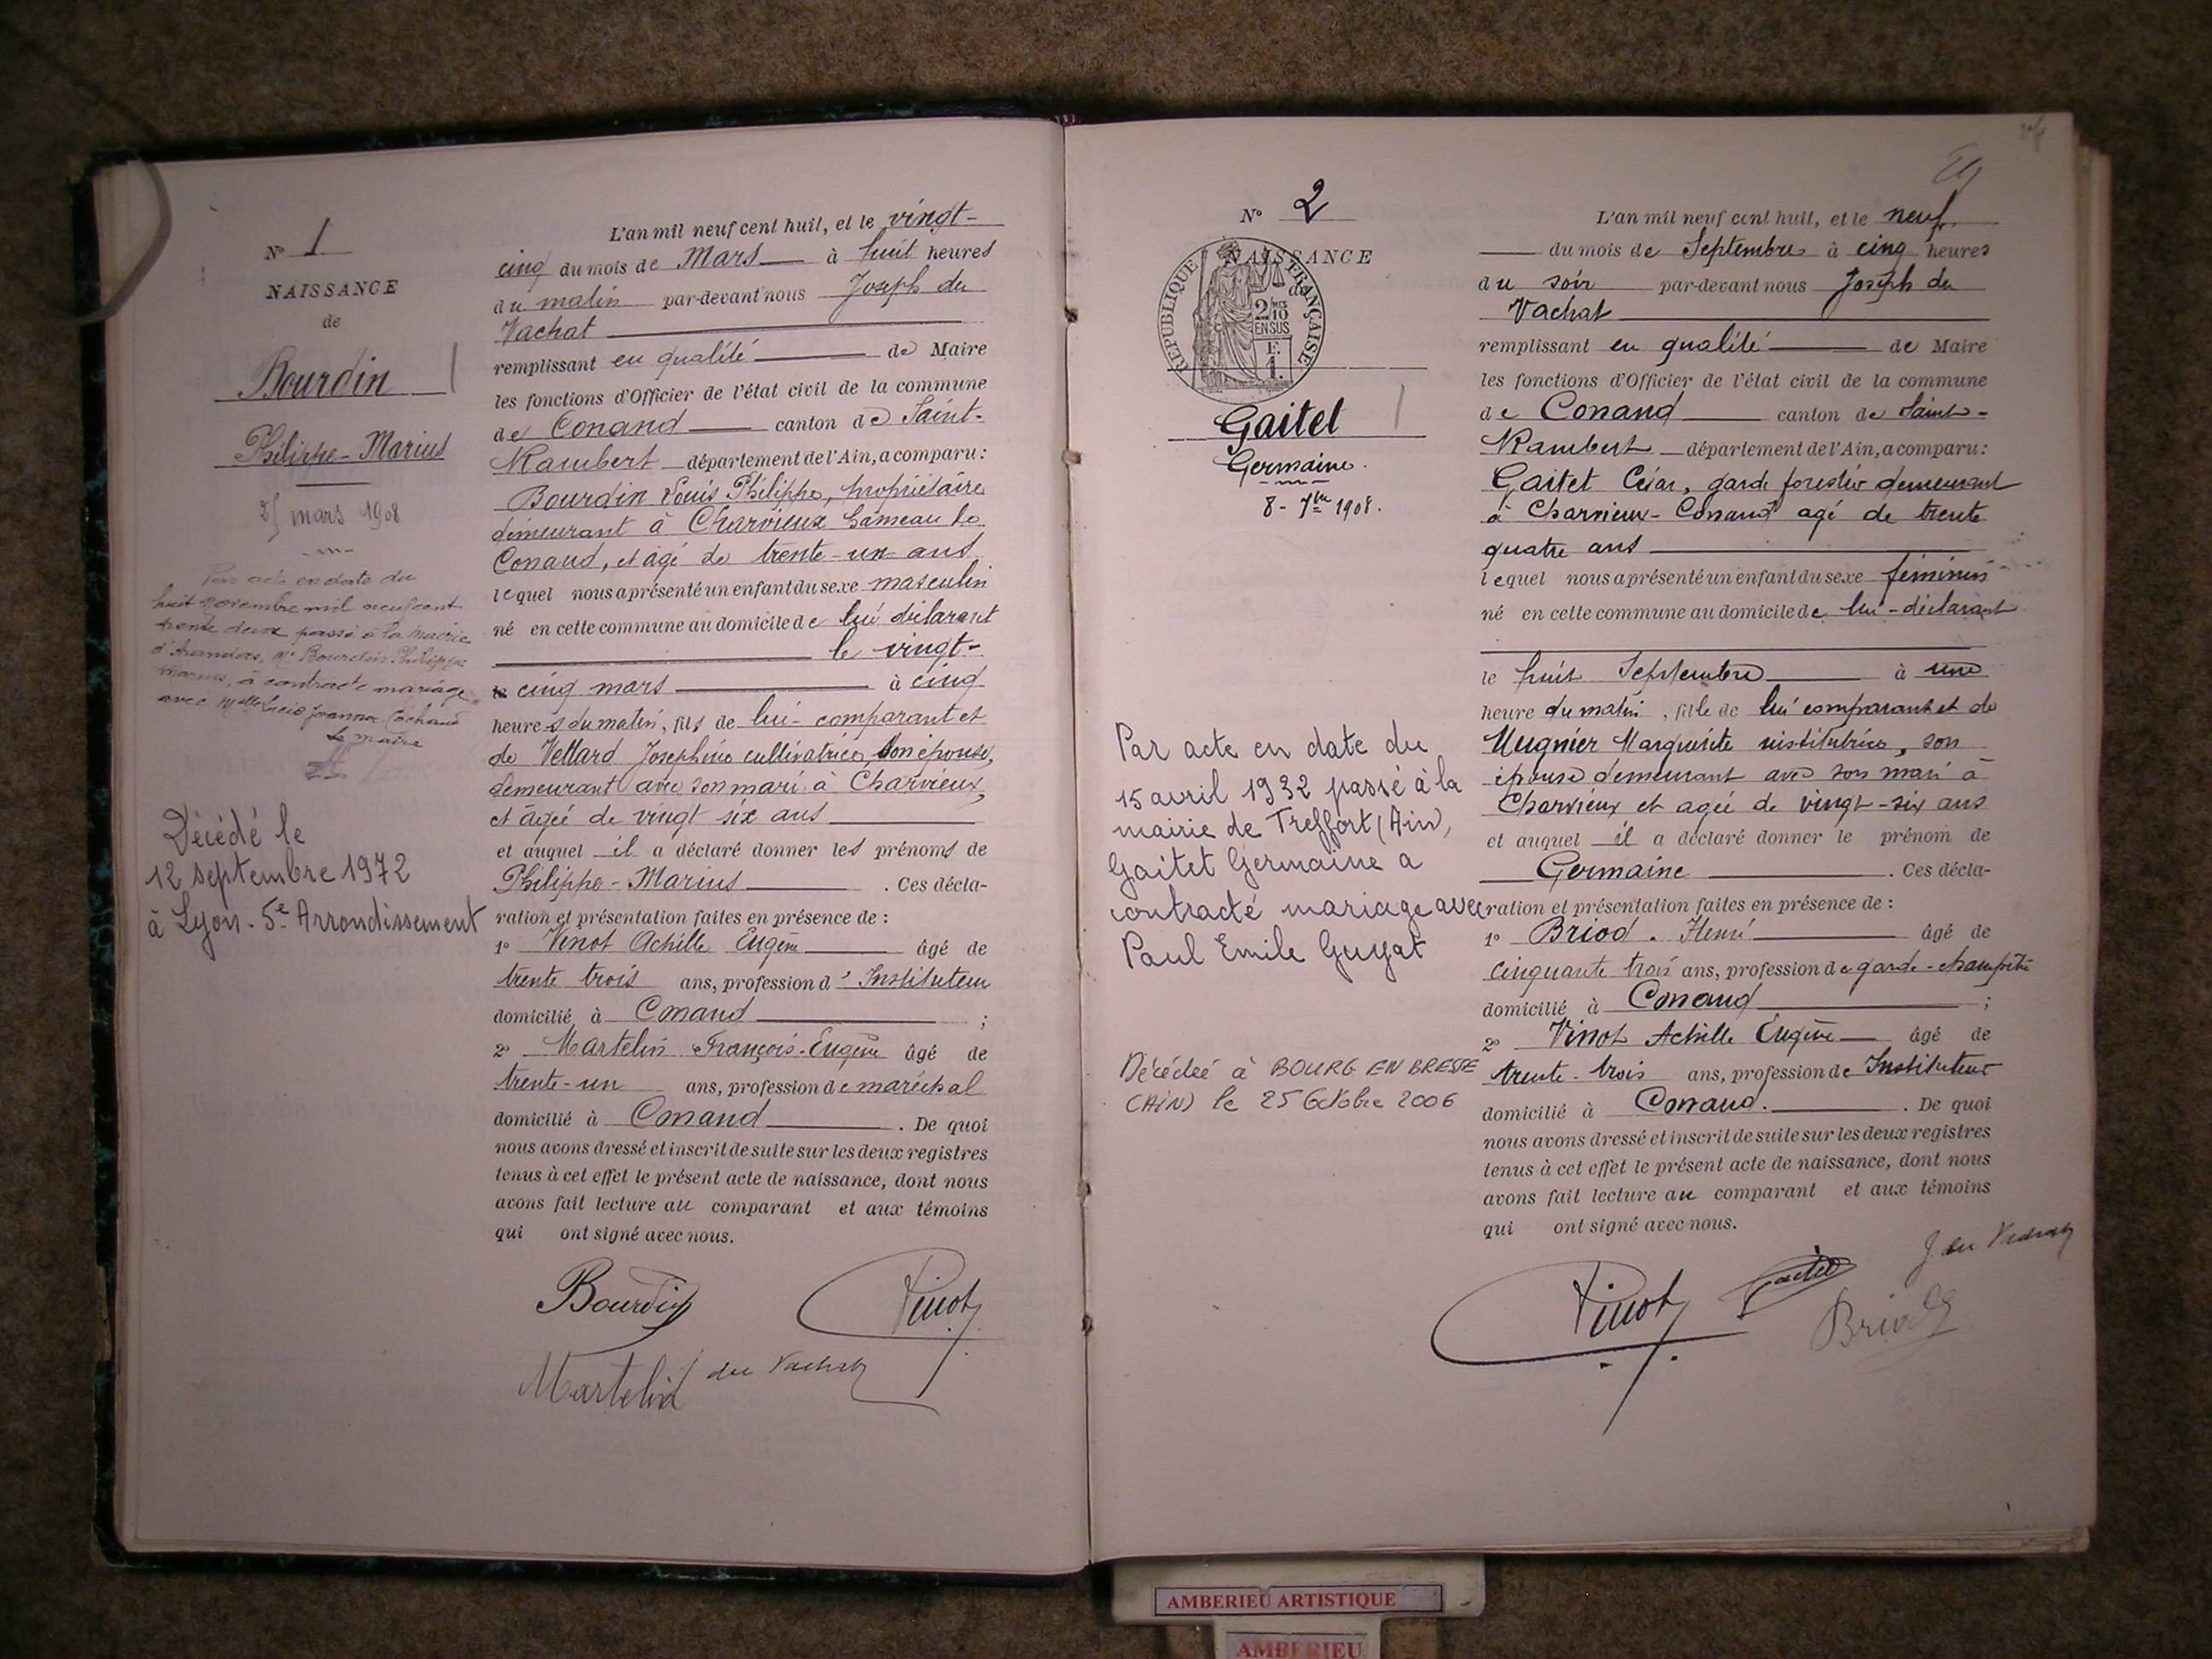 N° 1
NAISSANCE
de
Bourdin
Philippe-Marius
25 mars 1908
Par acte en date du
huit Novembre mil neuf cent
trente deux passé à la Mairie
d'Arandas, Mr Bourdin Philippe
Marius, à contracté mariage
avec Melle Joanna
Le maire
Décédé le
12 septembre 1972
à Lyon - 5e Arrondissement
L'an mil neuf cent huit, et le vingt-
cinq du mois de Mars à huit heures
du matin par-devant nous Joseph du
Vachat
remplissant en qualité de Maire
les fonctions d'Officier de l'état civil de la commune
de Conand canton de Saint-
Rambert département de l'Ain, a comparu :
Bourdin Louis Philippe, propriétaire
demeurant à Charvieux hameau de
Conand, et agé de trente-un ans
lequel nous a présenté un enfant du sexe masculin
né en cette commune au domicile de lui déclarant
le vingt-
cinq mars à cinq
heures du matin, fils de lui-comparant et
de Vettard Joséphine cultivatrice, son épouse,
demeurant avec son mari à Charvieux,
et âgée de vingt six ans
et auquel il a déclaré donner les prénoms de
Philippe-Marius . Ces décla-
ration et présentation faites en présence de :
1° Vinot Achille Eugène âgé de
trente trois ans, profession d'Instituteur
domicilié à Conand ;
2° Martelin François-Eugène âgé de
trente-un ans, profession de maréchal
domicilié à Conand . De quoi
nous avons dressé et inscrit de suite sur les deux registres
tenus à cet effet le présent acte de naissance, dont nous
avons fait lecture au comparant et aux témoins
qui ont signé avec nous.
Bourdin Vinot
Martelin J du Vachat
N° 2
NAISSANCE
de
REPUBLIQUE FRANÇAISE
2/10
EN SUS
F.
1.
Gaitet
Germaine.
8 - 7bre 1908.
Par acte en date du
15 avril 1932 passé à la
mairie de Treffort (Ain),
Gaitet Germaine a
contracté mariage avec
Paul Emile Guyat
Décédée à BOURG EN BRESSE
(AIN) le 25 Octobre 2006
L'an mil neuf cent huit, et le neuf
du mois de Septembre à cinq heures
du soir par-devant nous Joseph du
Vachat
remplissant en qualité de Maire
les fonctions d'Officier de l'état civil de la commune
de Conand canton de Saint-
Rambert département de l'Ain, a comparu :
Gaitet César, garde forestier demeurant
à Charvieux-Conand agé de trente
quatre ans
lequel nous a présenté un enfant du sexe féminin
né en cette commune au domicile de lui-déclarant
le huit Septembre à une
heure du matin, fille de lui comparant et de
Mugnier Marguerite institutrice, son
épouse demeurant avec son mari à
Charvieux et agée de vingt-six ans
et auquel il a déclaré donner le prénom de
Germaine . Ces décla-
ration et présentation faites en présence de :
1° Briod. Henri âgé de
cinquante trois ans, profession de garde-champêtre
domicilié à Conand ;
2° Vinot Achille Eugène âgé de
trente-trois ans, profession de Instituteur
domicilié à Conand. . De quoi
nous avons dressé et inscrit de suite sur les deux registres
tenus à cet effet le présent acte de naissance, dont nous
avons fait lecture au comparant et aux témoins
qui ont signé avec nous.
J du Vachat
Vinot Gaitet
Briod
AMBERIEU ARTISTIQUE
AMBERIEU